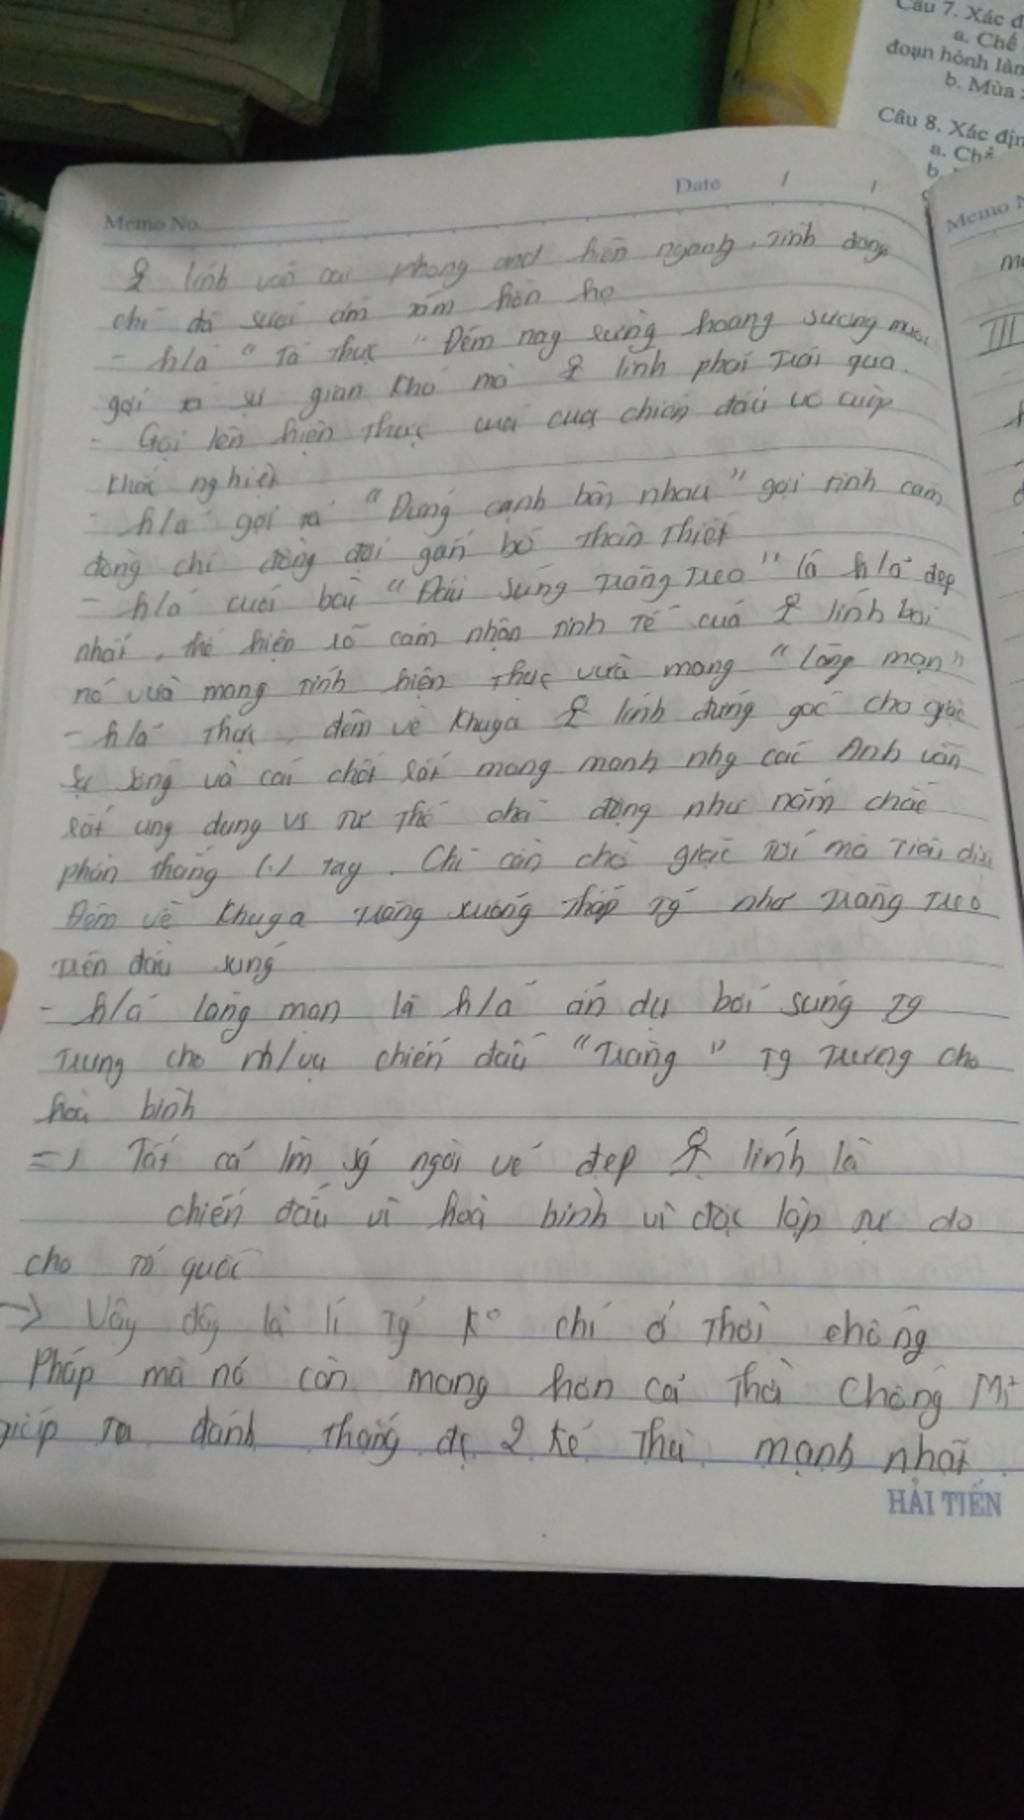 Câu 7. Xác đ
a. Chế
đoạn hỏnh làn
b. Mùa
Câu 8. Xác địn
a. Ch
b.
Memo No.
Date / /
Memo N
lính vẫn phong and hiên ngang, tình đồng
chí đã sưởi ấm hồn họ
- h/ả "Tả thực" Đêm nay rừng hoang sương muối
gợi ra sự gian khổ mà lính phải trải qua.
- Gợi lên hiện thực của chiến đấu vô cùng
khốc nghiệt
- h/ả gợi ra "Đứng cạnh bên nhau" gợi tình cảm
đồng chí đồng đội gắn bó thân thiết
- h/ả cuối bài "Đầu súng trăng treo" là h/ả đẹp
nhất, thể hiện rõ cảm nhận tinh tế của lính bởi
nó vừa mang tính hiện thực vừa mang "lãng mạn"
- h/ả thực, đêm về khuya lính đứng gác chờ giặc
sự sống và cái chết rất mong manh nhg các Anh vẫn
rất ung dung vs tư thế chủ động như nắm chắc
phần thắng (.) tay. Chỉ cần chờ giặc tới mà tiêu diệt
Đêm về khuya trăng xuống thấp tg như trăng treo
trên đầu súng
- h/ả lãng mạn là h/ả ẩn dụ bởi súng tg
trưng cho nh/vụ chiến đấu "Trăng" tg trưng cho
hoà bình
=) Tất cả lm ság ngời vẻ đẹp lính là
chiến đấu vì hoà bình vì độc lập tự do
cho tổ quốc
-> Vậy đây là lí tg k° chỉ ở thời chống
Pháp mà nó còn mang hơn cả thời chống Mĩ
giúp ta đánh thắng đc 2 kẻ thù mạnh nhất
HẢI TIẾN
III